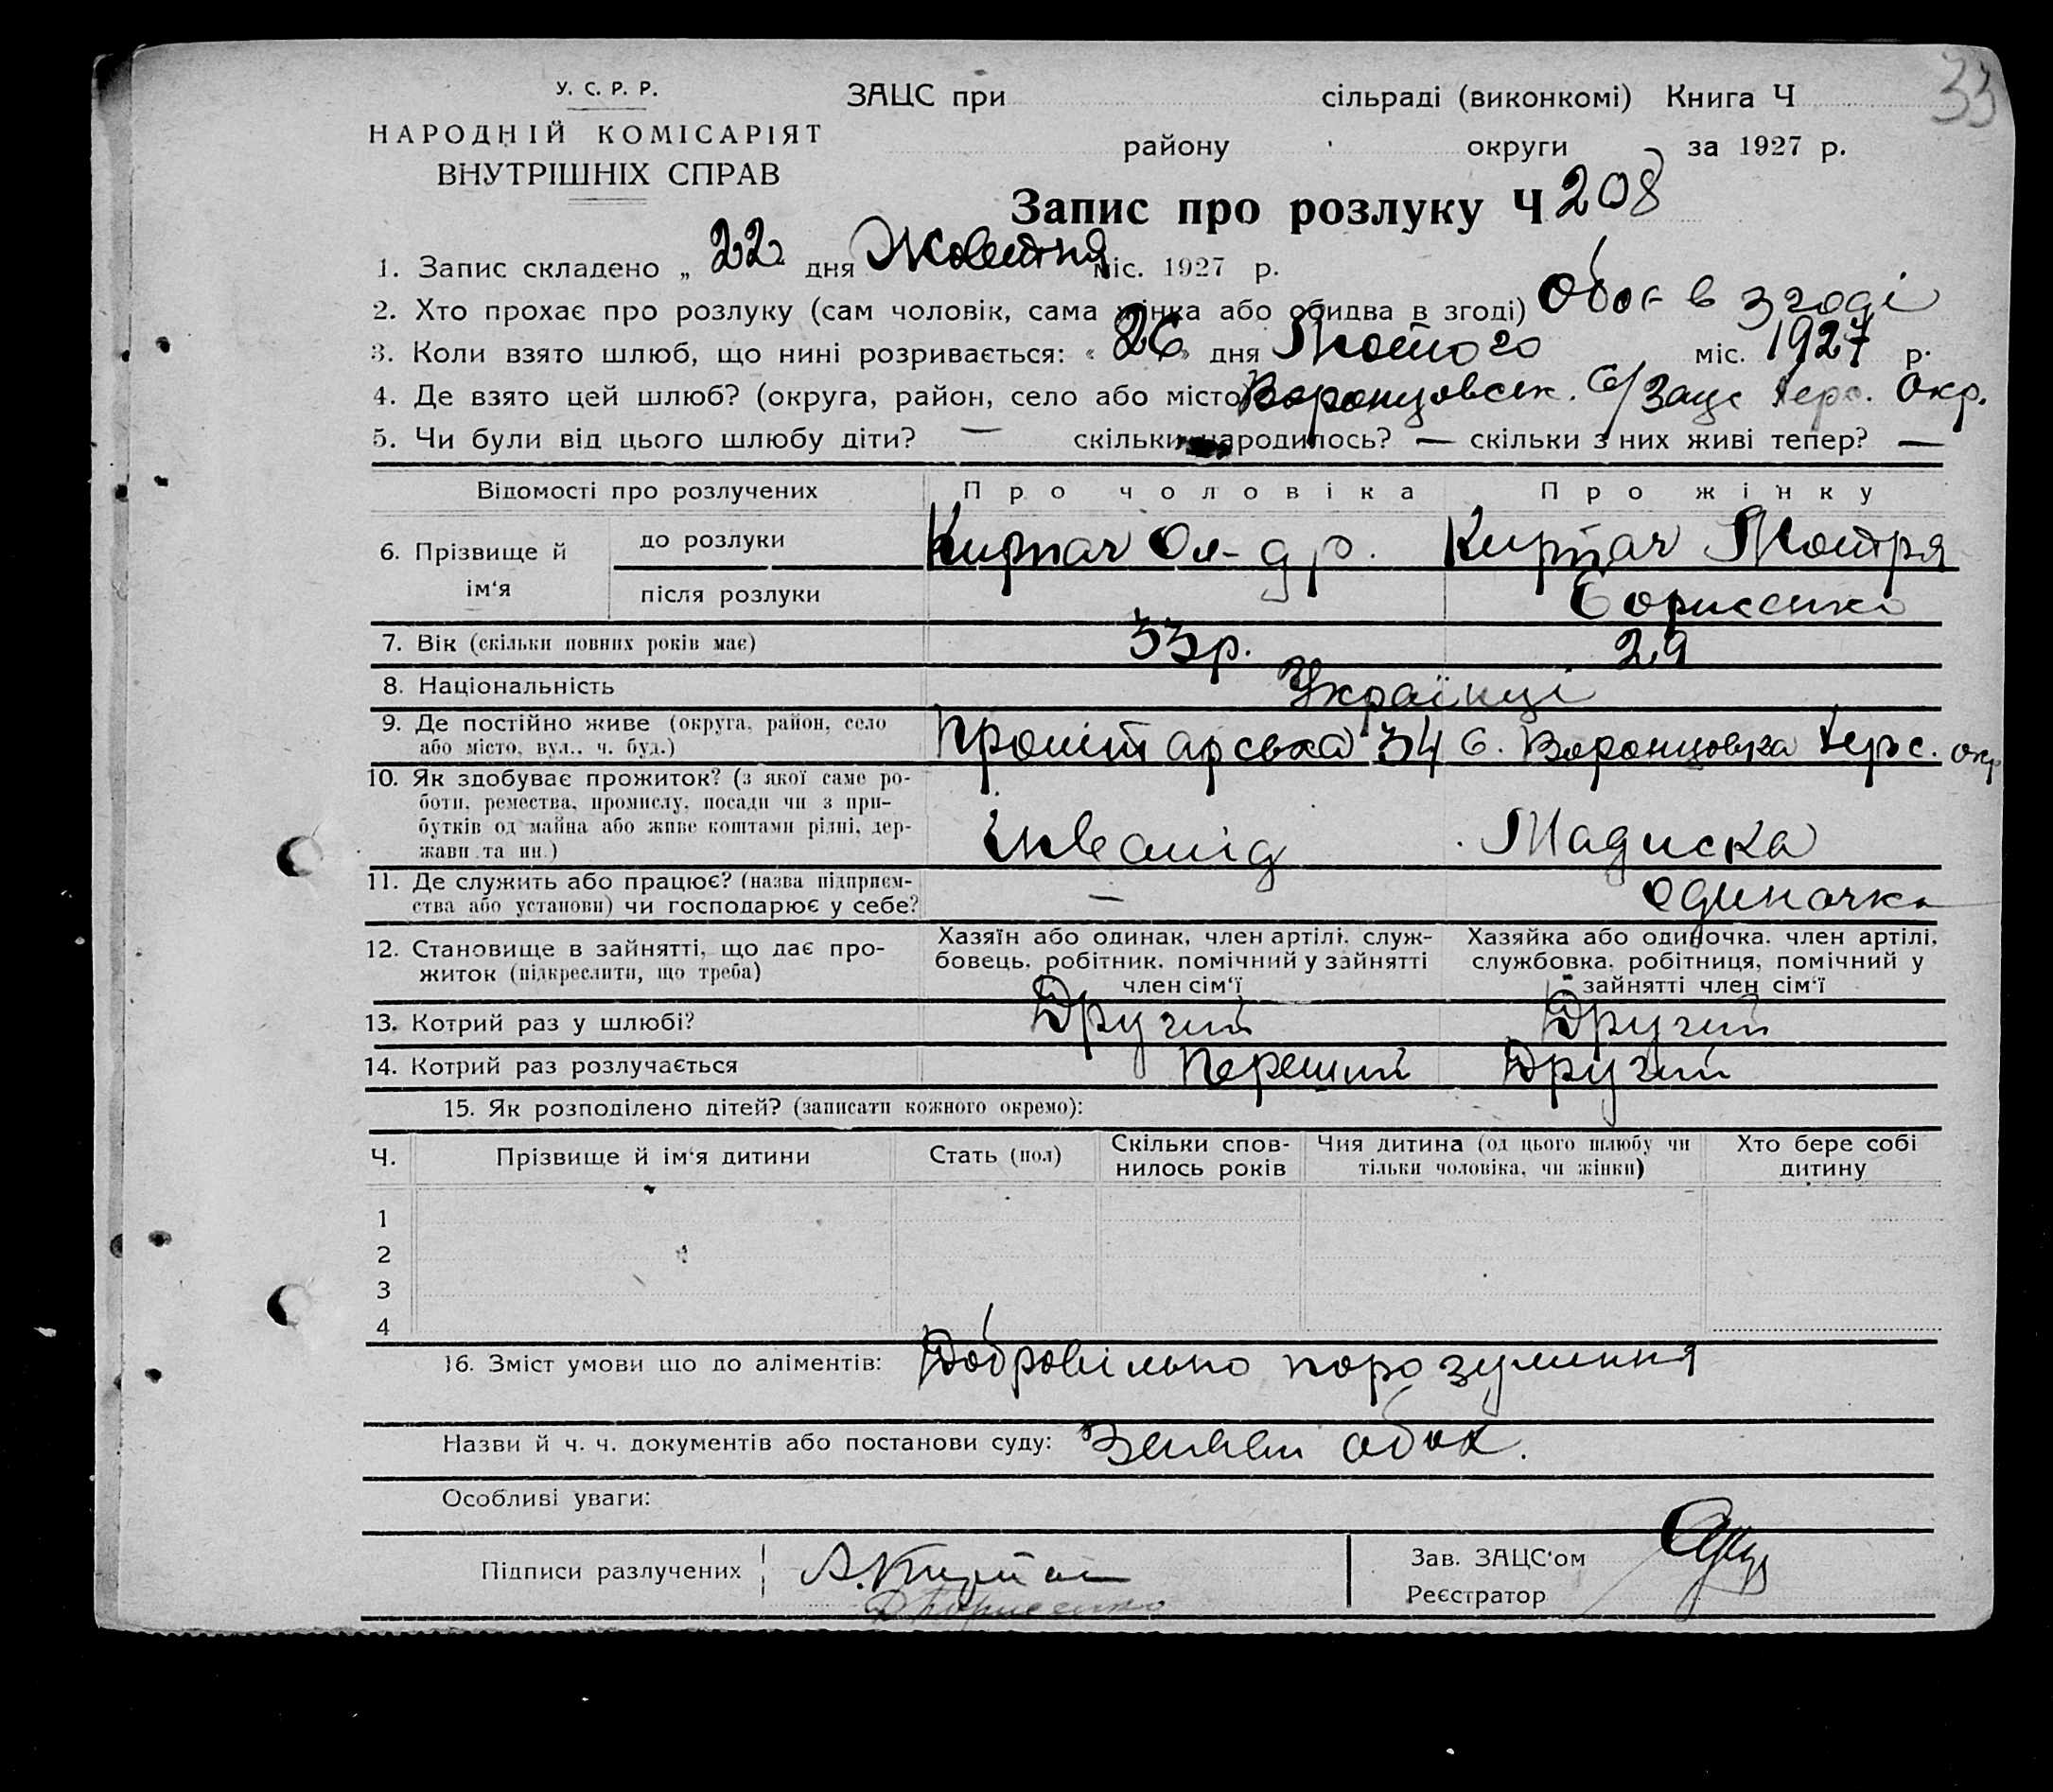 33
У. С. Р. Р.
НАРОДНІЙ КОМІСАРІЯТ
ВНУТРІШНІХ СПРАВ
ЗАЦС при сільраді (виконкомі) Книга Ч
району округи за 1927 р.
Запис про розлуку Ч 208
1. Запис складено „ 22 дня Жовтня міс. 1927 р.
2. Хто прохає про розлуку (сам чоловік, сама жінка або обидва в згоді) Обоє в згоді
3. Коли взято шлюб, що нині розривається: « 26 » дня Лютого міс. 1927 р.
4. Де взято цей шлюб? (округа, район, село або місто) Воронцовськ. С/Зацс Херс. Окр.
5. Чи були від цього шлюбу діти? — скільки народилось? — скільки з них живі тепер? —
Відомості про розлучених Про чоловіка Про жінку
6. Прізвище й ім‘я до розлуки Киртач Ол-др. Киртач Мотря
після розлуки Борисенко
7. Вік (скільки повних років має) 33 р. 29
8. Національність Українці
9. Де постійно живе (округа, район, село
або місто, вул.. ч. буд.) Пролітарська 34 с. Воронцовка Херс. окр
10. Як здобуває прожиток? (з якої саме ро-
боти, ремества, промислу, посади чи з при-
бутків од майна або живе коштами рідні, дер-
жави та ин.) інвалід
11. Де служить або працює? (назва підприєм-
ства або установи) чи господарює у себе? — одиночка
12. Становище в зайнятті, що дає про-
житок (підкреслити, що треба)
Хазяїн або одинак, член артілі, служ-
бовець, робітник, помічний у зайнятті
член сім‘ї
Хазяйка або одиночка, член артілі,
службовка, робітниця, помічний у
зайнятті член сім‘ї
13. Котрий раз у шлюбі? Другий Другий
14. Котрий раз розлучається Перший Другий
15. Як розподілено дітей? (записати кожного окремо):
Ч. Прізвище й ім‘я дитини Стать (пол) Скільки спов-
нилось років Чия дитина (од цього шлюбу чи
тільки чоловіка, чи жінки) Хто бере собі
дитину
1
2
3
4
16. Зміст умови що до аліментів: Добровільно порозуміння
Назви й ч. ч. документів або постанови суду: обох.
Особливі уваги:
Підписи разлучених А. Киртач
Борисенко
Зав. ЗАЦС'ом
Реєстратор